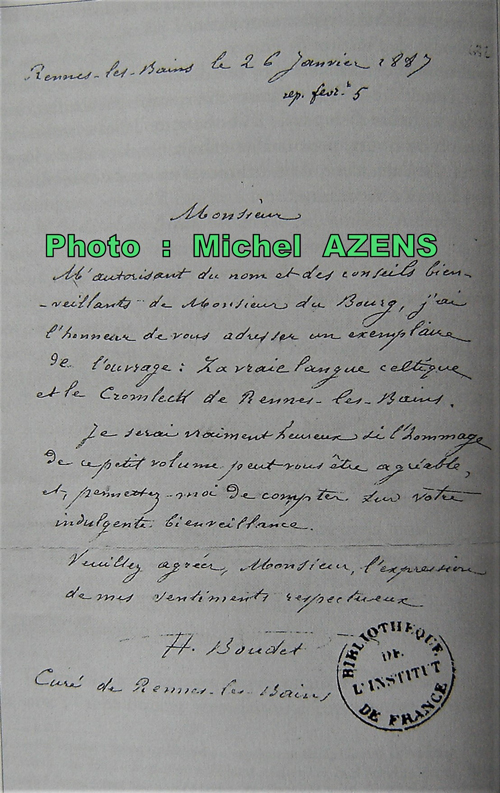 Rennes-les-Bains le 26 Janvier 1887
rep. fevr. 5
Monsieur
Photo : Michel AZENS
M'autorisant du nom et des conseils bien-
-veillants de Monsieur du Bourg, j'ai
l'honneur de vous adresser un exemplaire
de l'ouvrage : La vraie langue celtique
et le Cromleck de Rennes-les-Bains.
Je serai vraiment heureux si l'hommage
de ce petit volume peut vous être agréable,
et, permettez-moi de compter sur votre
indulgente bienveillance.
Veuillez agréer, Monsieur, l'expression
de mes sentiments respectueux
H. Boudet
Curé de Rennes-les-Bains
BIBLIOTHEQUE
DE
L'INSTITUT
DE FRANCE